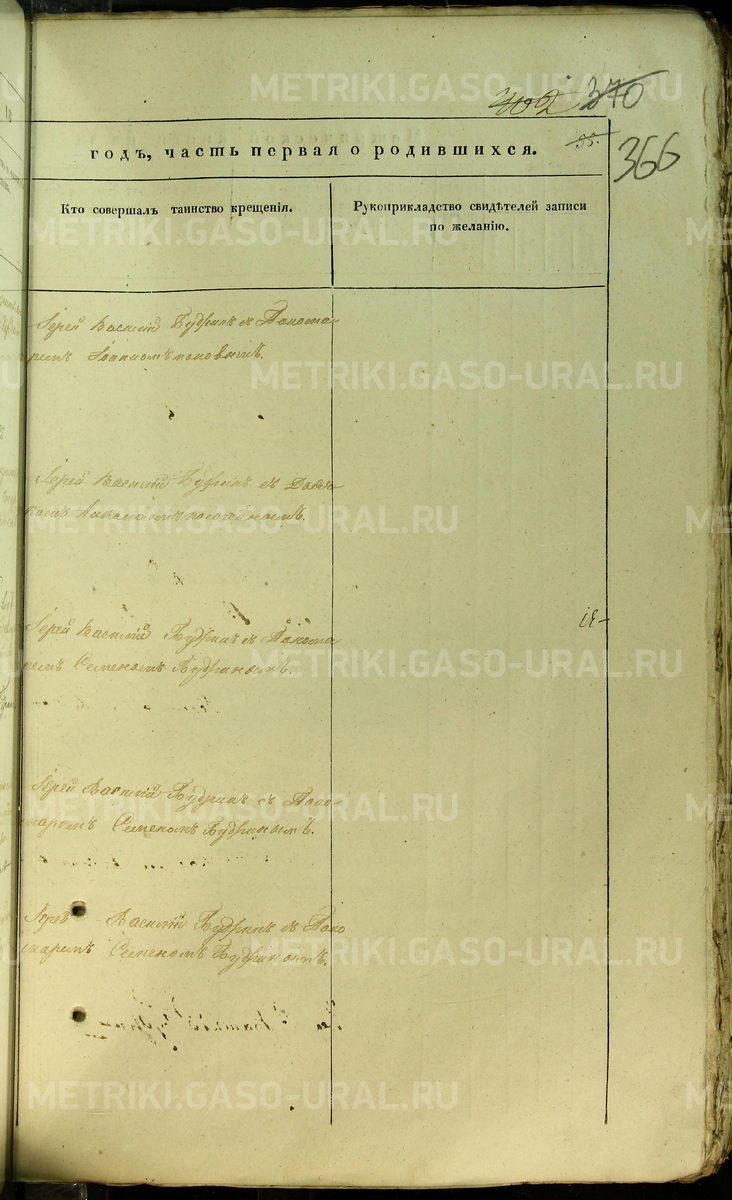 METRIKI.GASO-URAL.RU
402 370
годъ, часть первая о родившихся. 55. 366
Кто совершалъ таинство крещенія.
Рукоприкладство свидѣтелей записи
по желанію.
Іерей Василій Будринъ съ Понома-
ремъ Іоанномъ Поповымъ.
Іерей Василій Будринъ съ Дьяч-
комъ
Іерей Василій Будринъ съ Понома
ремъ Семеномъ Будринымъ.
Іерей Василій Будринъ съ Поно-
маремъ Семеномъ Будринымъ.
Іерей Василій Будринъ съ Поно
маремъ Семеномъ Будринымъ.